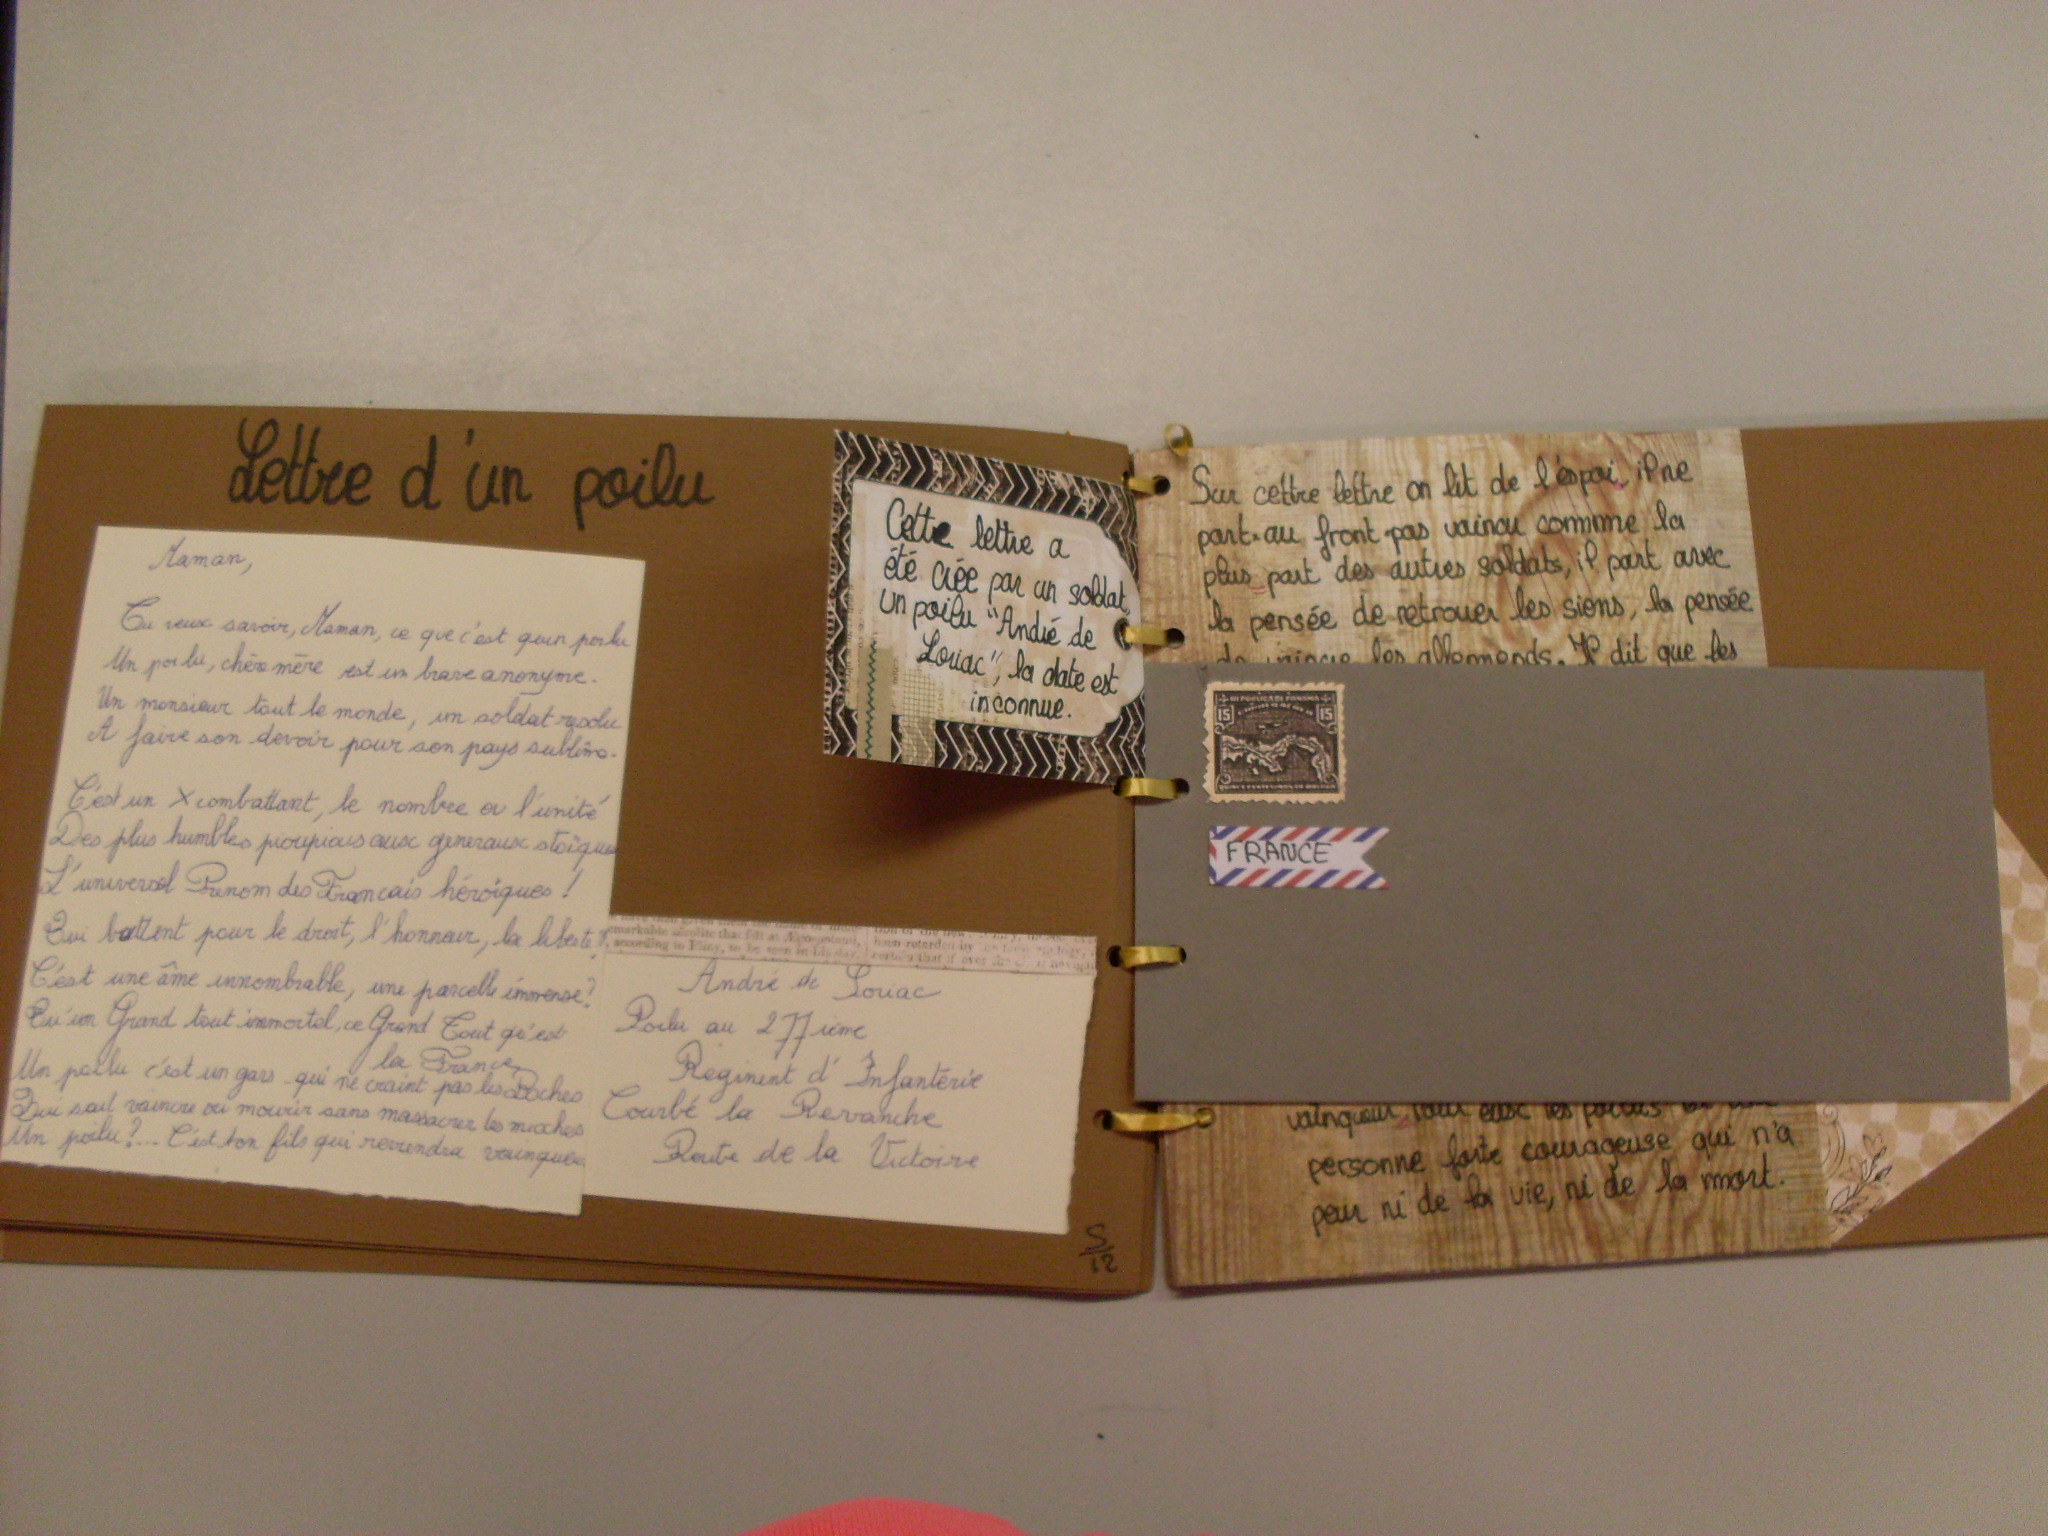 Lettre d'un poilu
Maman,
Tu veux savoir, Maman, ce que c'est qu'un poilu
Un poilu, chère mère est un brave anonyme.
Un monsieur tout le monde, un soldat résolu
A faire son devoir pour son pays sublime.
C'est un X combattant, le nombre ou l'unité
Des plus humbles pioupious aux generaux stoïques
L'universel Prénom des Français héroïques !
Qui battent pour le droit, l'honneur, la liberté
C'est une âme innombrable, une parcelle immense ?
Qu'un Grand tout immortel, ce Grand Tout qu'est
la France
Un poilu c'est un gars qui ne craint pas les Boches
Qui sait vaincre ou mourir sans massacrer les mioches
Un poilu ?... C'est ton fils qui reviendra vainqueur
Cette lettre a
été créé par un soldat,
un poilu "André de
Louac", la date est
inconnue.
emarkable aërolite that fell at
according to Pliny, to be seen in
been retarded by
certain that if ever
André de Louac
Poilu au 277 ième
Régiment d'Infantérie
Courbé la Revanche
Route de la Victoire
5/12
Sur cettre lettre on lit de l'éspoi, il ne
part au front pas vaincu commme la
plus part des autres soldats, il part avec
la pensée de retrouer les siens, la pensée
de vaincre les allemends. Il dit que les
REPUBLICA DE PANAMA
15 15
FRANCE
vainqueur
personne forte courageuse qui n'a
peur ni de la vie, ni de la mort.